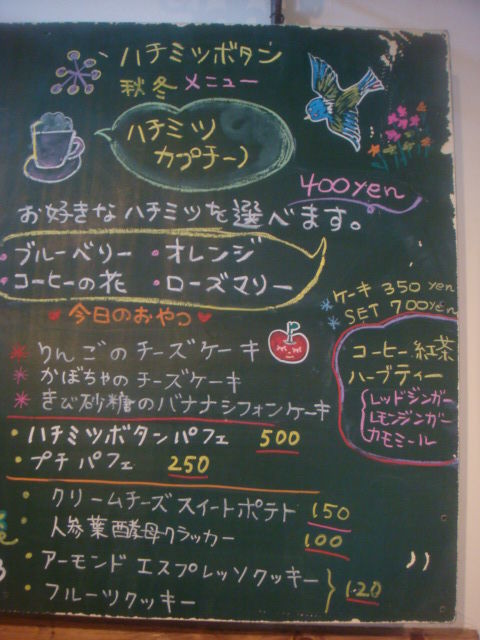 ハチミツボタン
秋冬メニュー
ハチミツ
カプチーノ
400yen
お好きなハチミツを選べます。
・ブルーベリー ・オレンジ
・コーヒーの花 ・ローズマリー
ケーキ 350 yen
SET 700yen
今日のおやつ
りんごのチーズケーキ
かぼちゃのチーズケーキ
きび砂糖のバナナシフォンケーキ
コーヒー 紅茶
ハーブティー
レッドジンガー
レモンジンガー
カモミール
・ハチミツボタンパフェ 500
・プチパフェ 250
・クリームチーズスイートポテト 150
・人参葉酵母クラッカー 100
・アーモンドエスプレッソクッキー
・フルーツクッキー 120